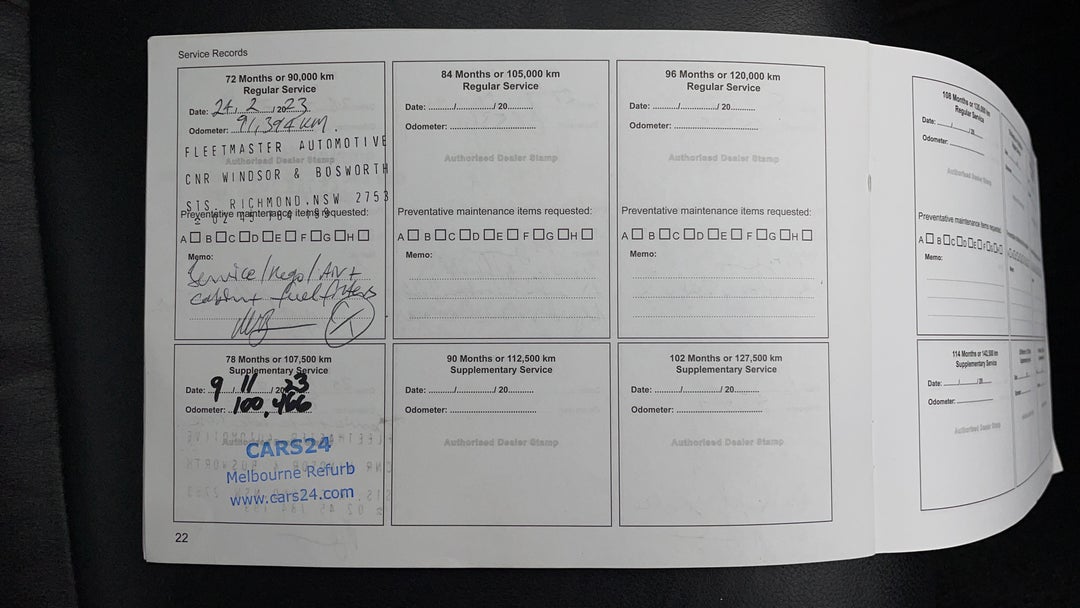 Service Records
72 Months or 90,000 km
Regular Service
Date: 24 / 2 / 2023
Odometer: 91,394 KM.
Authorised Dealer Stamp
FLEETMASTER AUTOMOTIVE
CNR WINDSOR & BOSWORTH
STS. RICHMOND.NSW 2753
Preventative maintenance items requested:
A B C D E F G H
Memo:
Service/Rego/Air +
cabin + fuel filters
78 Months or 107,500 km
Supplementary Service
Date: 9 / 11 / 2023
Odometer: 100,466
CARS24
Melbourne Refurb
www.cars24.com
84 Months or 105,000 km
Regular Service
Date: ......../......../ 20.........
Odometer: ..............................
Authorised Dealer Stamp
Preventative maintenance items requested:
A B C D E F G H
Memo:
90 Months or 112,500 km
Supplementary Service
Date: ......../......../ 20.........
Odometer: ..............................
Authorised Dealer Stamp
96 Months or 120,000 km
Regular Service
Date: ......../......../ 20.........
Odometer: ..............................
Authorised Dealer Stamp
Preventative maintenance items requested:
A B C D E F G H
Memo:
102 Months or 127,500 km
Supplementary Service
Date: ......../......../ 20.........
Odometer: ..............................
Authorised Dealer Stamp
108 Months or 135,000 km
Regular Service
Date: ......../......../ 20.........
Odometer: ..............................
Authorised Dealer Stamp
Preventative maintenance items requested:
A B C D E F G H
Memo:
114 Months or 142,500 km
Supplementary Service
Date: ......../......../ 20.........
Odometer: ..............................
Authorised Dealer Stamp
22